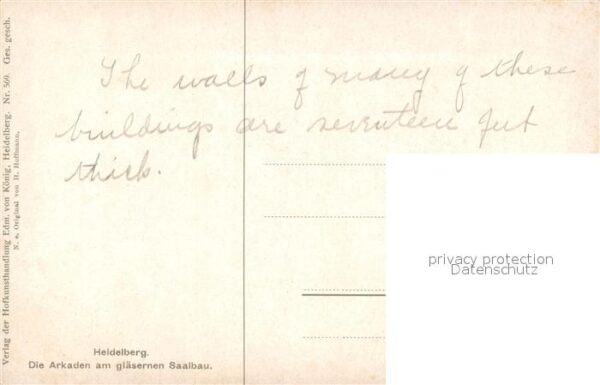 The walls of many of these
buildings are seventeen feet
thick.
privacy protection
Datenschutz
Heidelberg.
Die Arkaden am gläsernen Saalbau.
Verlag der Hofkunsthandlung Edm. von König, Heidelberg. Nr. 569. Ges. gesch.
N. e. Original von H. Hoffmann.